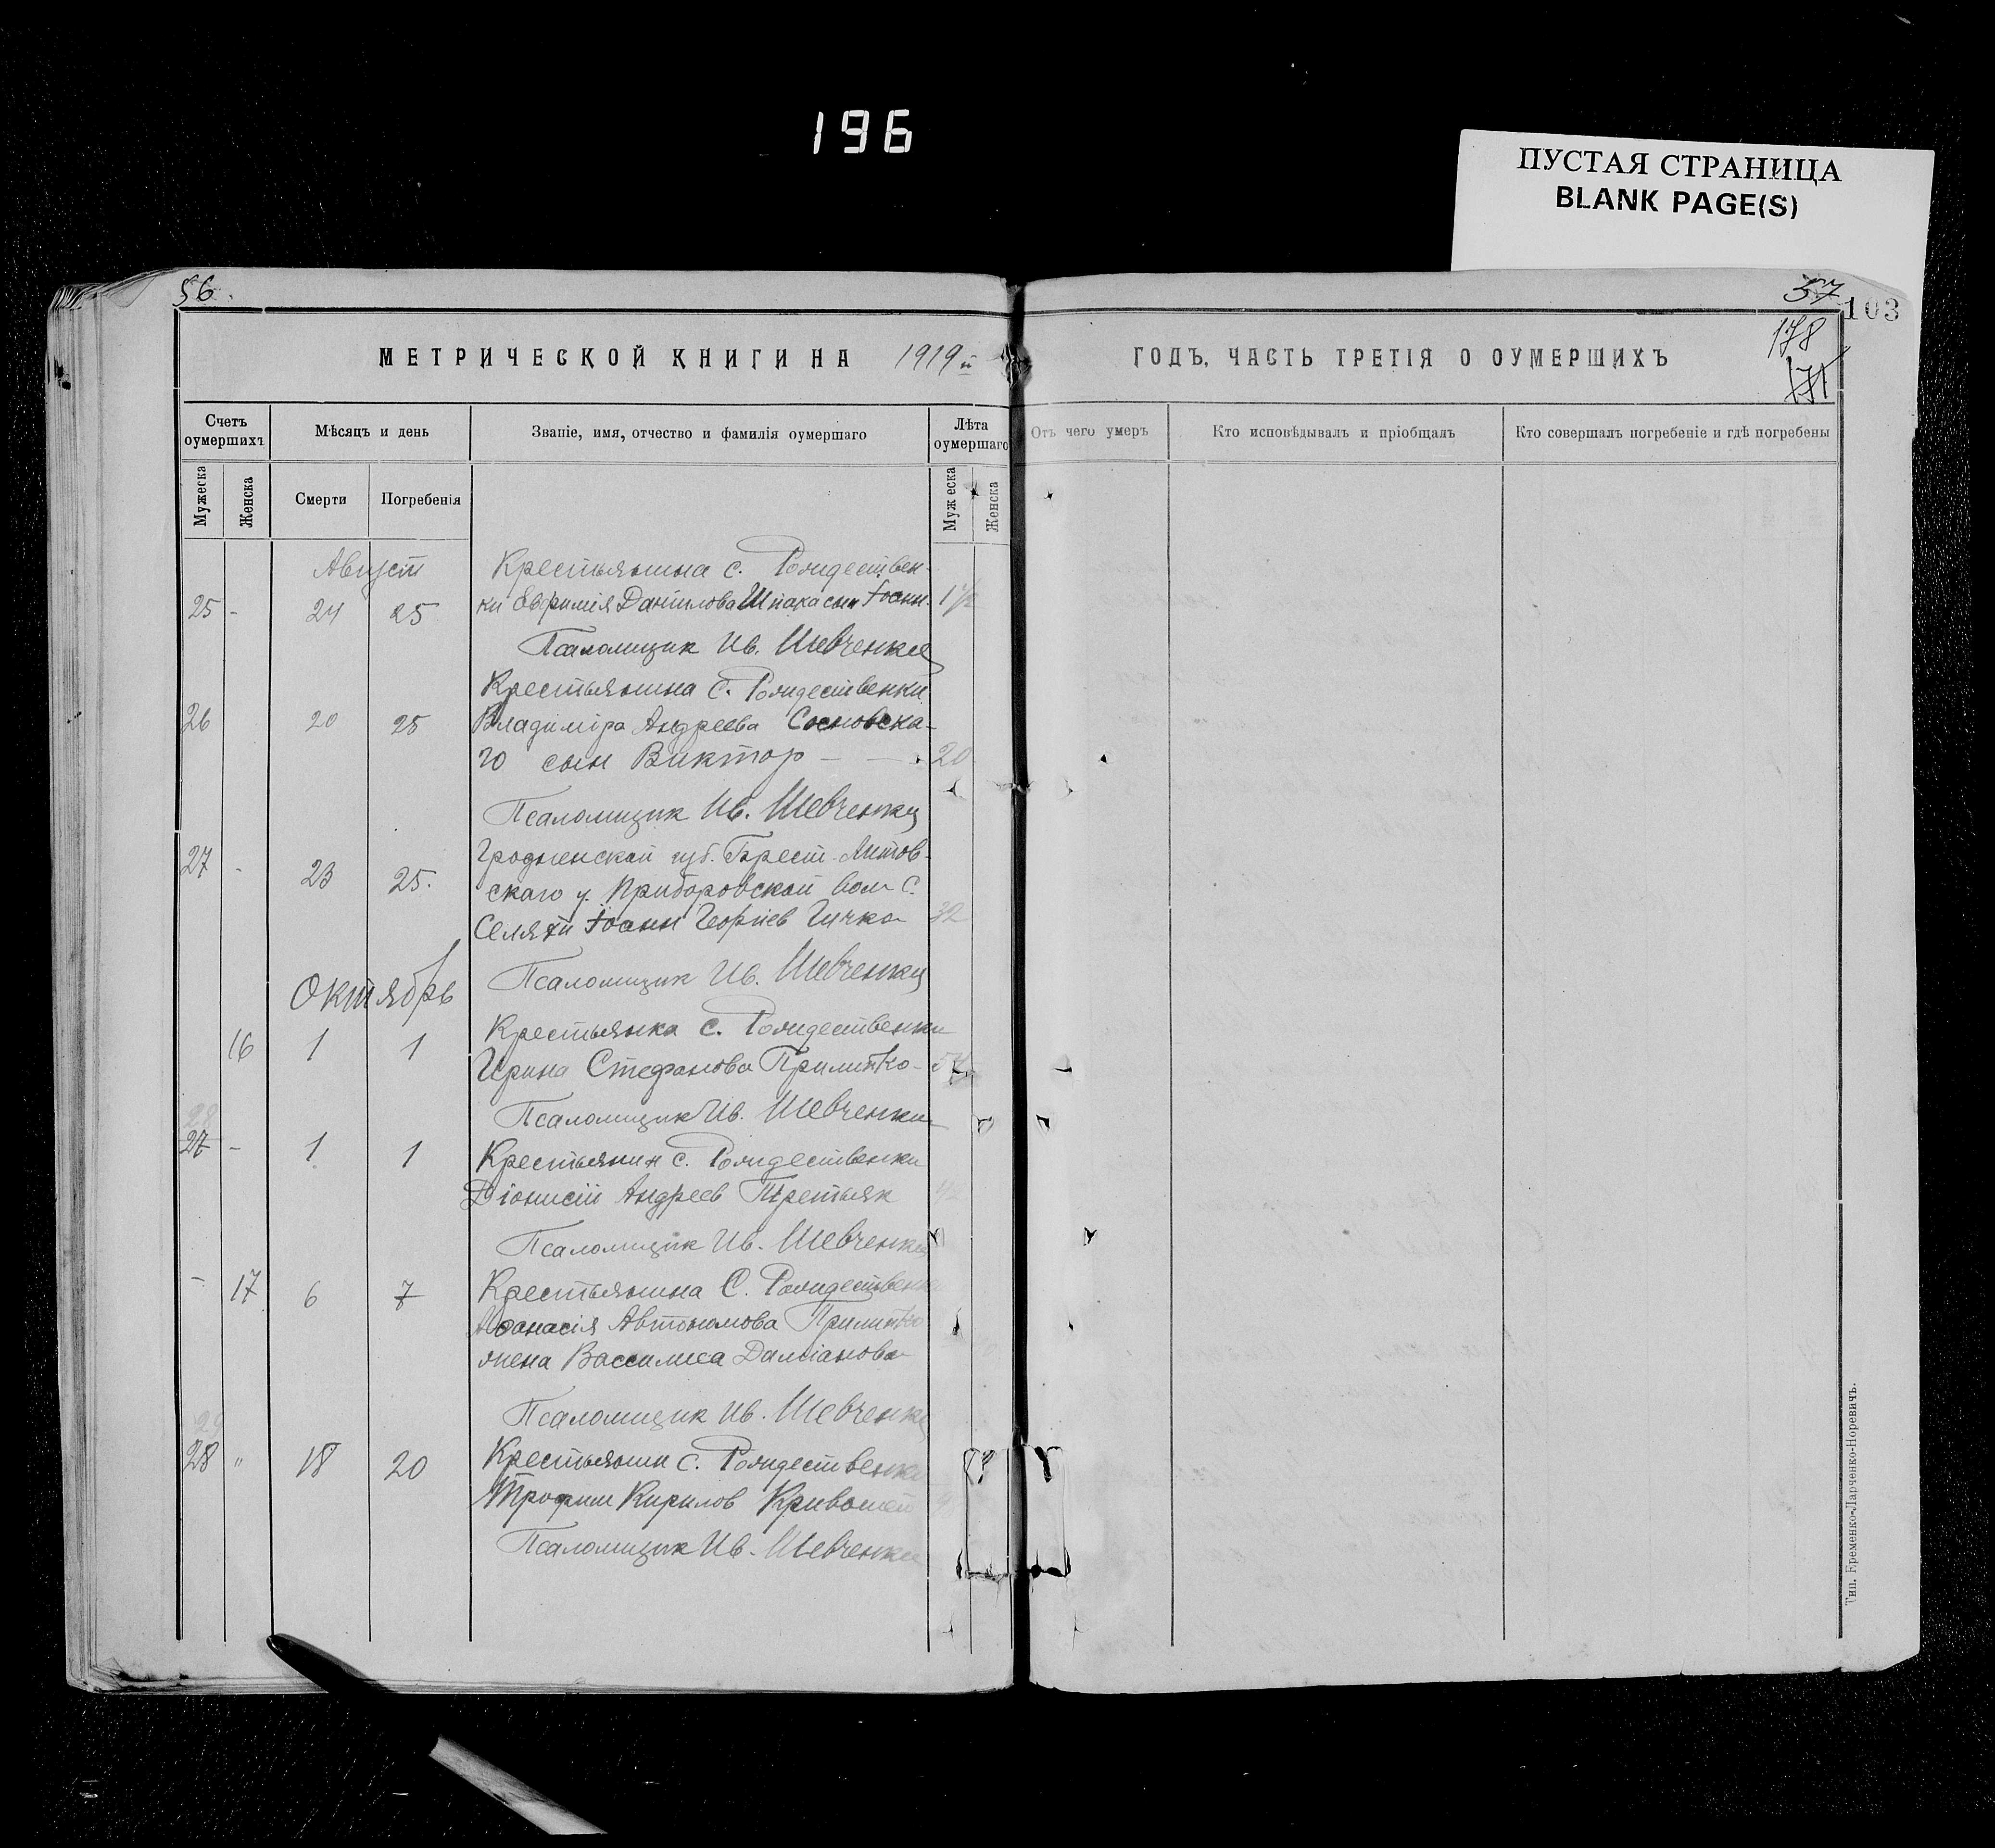 196
ПУСТАЯ СТРАНИЦА
BLANK PAGE(S)
56.
57
103
178
171
МЕТРИЧЕСКОЙ КНИГИ НА 1919 й
ГОДЪ, ЧАСТЬ ТРЕТІЯ О ОУМЕРШИХЪ
Счетъ оумершихъ
Мѣсяцъ и день
Званіе, имя, отчество и фамилія оумершаго
Лѣта оумершаго
Отъ чего умеръ
Кто исповѣдывалъ и пріобщалъ
Кто совершалъ погребеніе и гдѣ погребены
Мужеска
Женска
Смерти
Погребенія
Мужеска
Женска
Август
Крестьянина с. Рождествен-
25 - 24 25 ки Евфимія Даниилова Шпака сын Іоанн. 1 1/2
Псаломщик Ив. Шевченко
Крестьянина С. Рождественки
26 20 25 Владиміра Андреева Сосновска-
го сын Виктор - - 20
Псаломщик Ив. Шевченко
Гродненской губ. Брест-Литов-
27 - 23 25. скаго у. Приборовской вол С.
Селяхи Іоанн Георгіев Гичко 32
Псаломщик Ив. Шевченко
Октябрь
Крестьянка с. Рождественки
16 1 1
Ирина Стефанова Прилипко-
Псаломщик Ив. Шевченко
28
27 - 1 1 Крестьянин с. Рождественки
Діонисій Андреев Третьяк
Псаломщик Ив. Шевченко
- 17 6 7 Крестьянина С. Рождественки
Афанасія Автономова Прилипко
жена Вассилиса Даміанова
Псаломщик Ив. Шевченко
29
28 " 18 20 Крестьянин с. Рождественки
Трофим Кирилов Кривошей
Псаломщик Ив. Шевченко
Тип. Еременко-Ларченко-Норевичъ.